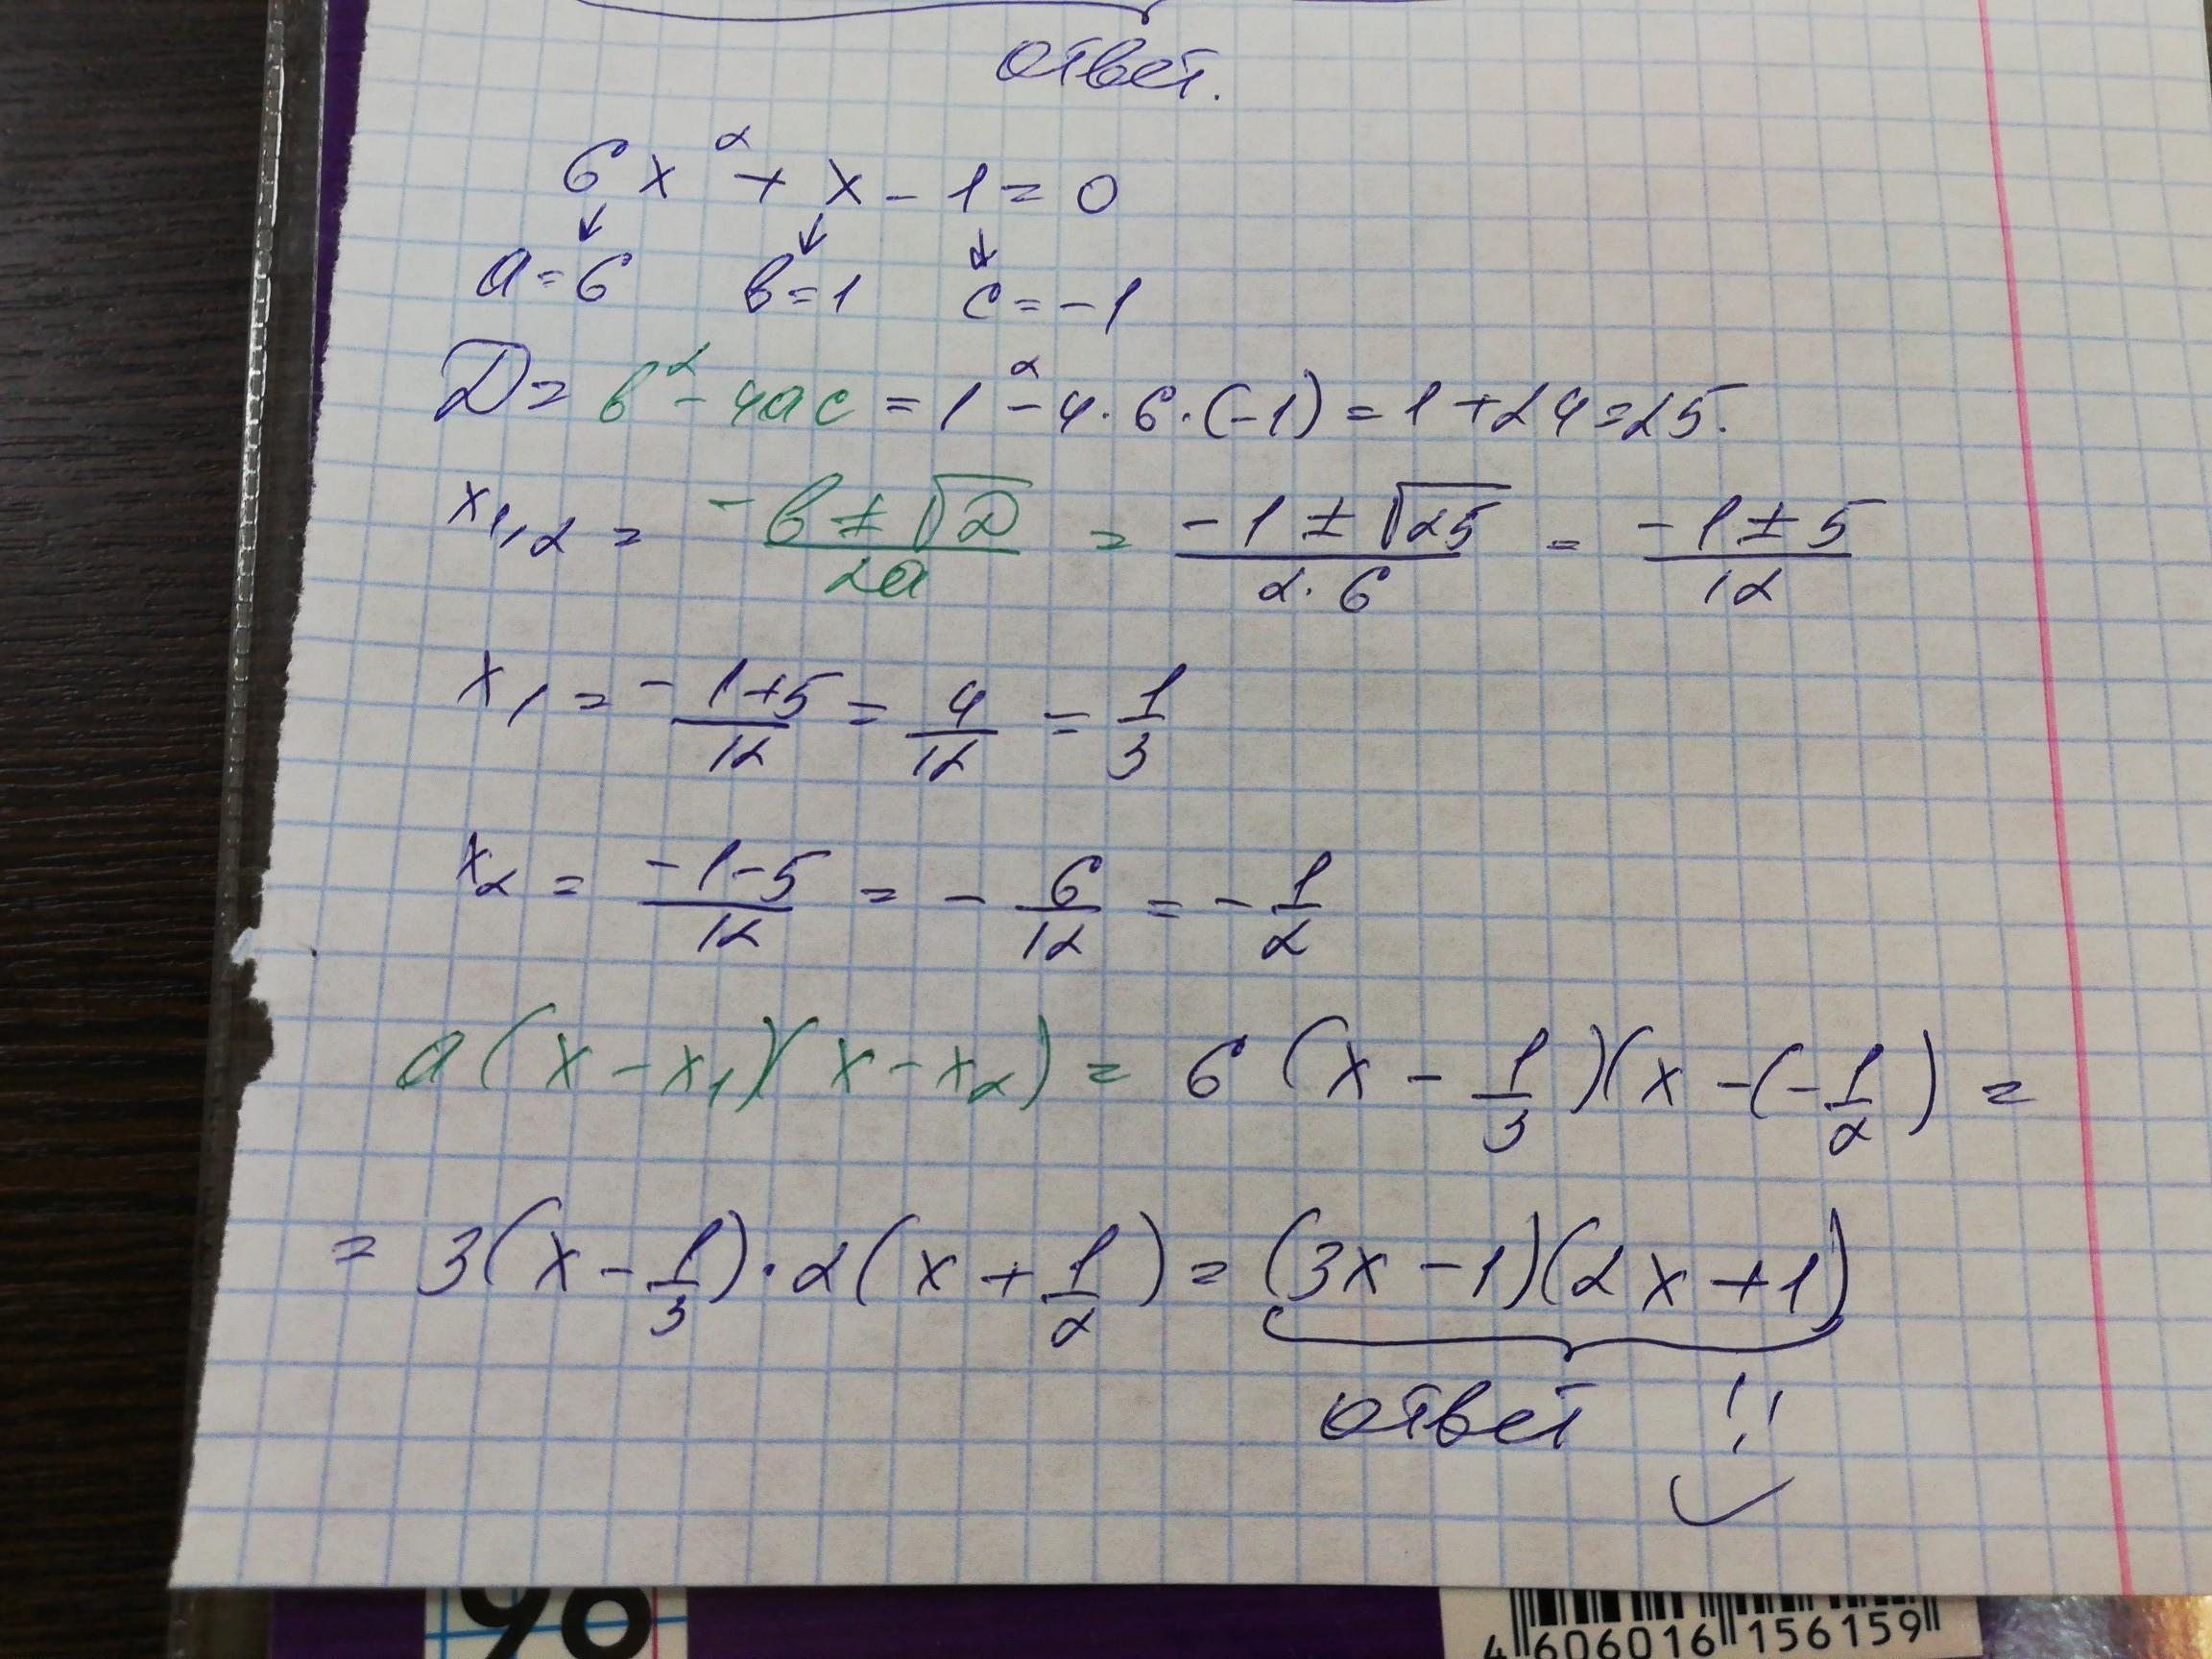 ответ.
6x² + x - 1 = 0
a = 6 в = 1 c = -1
D = в² - 4ac = 1² - 4 · 6 · (-1) = 1 + 24 = 25.
x₁,₂ = (-в ± √D)/(2a) = (-1 ± √25)/(2 · 6) = (-1 ± 5)/12
x₁ = (-1+5)/12 = 4/12 = 1/3
x₂ = (-1-5)/12 = - 6/12 = - 1/2
a(x - x₁)(x - x₂) = 6(x - 1/3)(x - (-1/2) =
= 3(x - 1/3) · 2(x + 1/2) = (3x - 1)(2x + 1)
ответ
96
4 606016 156159